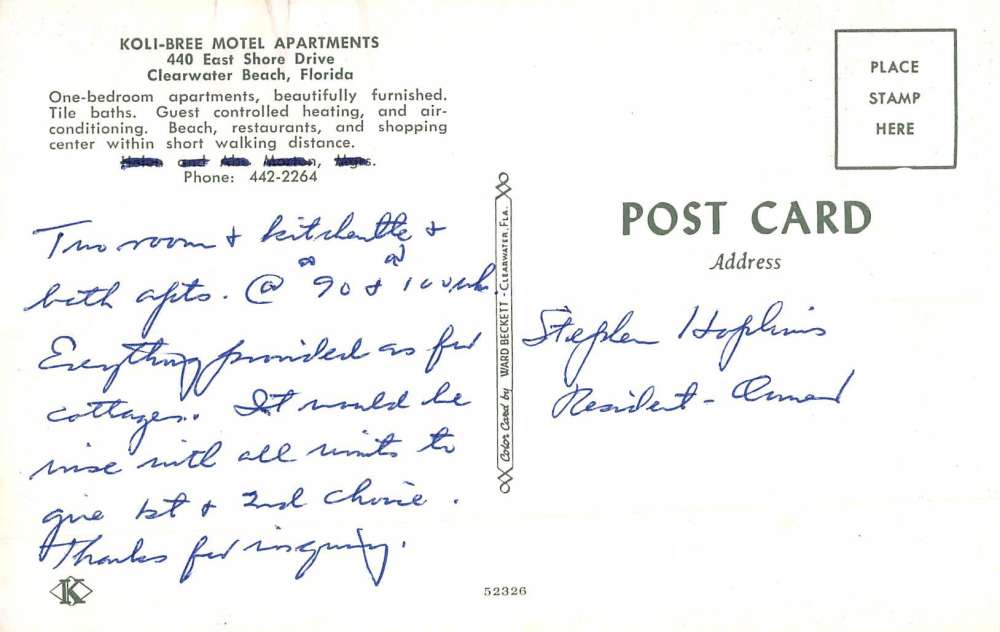 KOLI-BREE MOTEL APARTMENTS
440 East Shore Drive
Clearwater Beach, Florida
One-bedroom apartments, beautifully furnished.
Tile baths. Guest controlled heating, and air-
conditioning. Beach, restaurants, and shopping
center within short walking distance.
Phone: 442-2264
Two room & kitchenette &
bath apts. @ 90 & 100 wk.
Everything provided as for
cottages. It would be
wise with all units to
give 1st & 2nd choice.
Thanks for inquiry.
K
Color Card by WARD BECKETT - CLEARWATER, FLA.
PLACE
STAMP
HERE
POST CARD
Address
Stephen Hopkins
Resident - Owner
52326